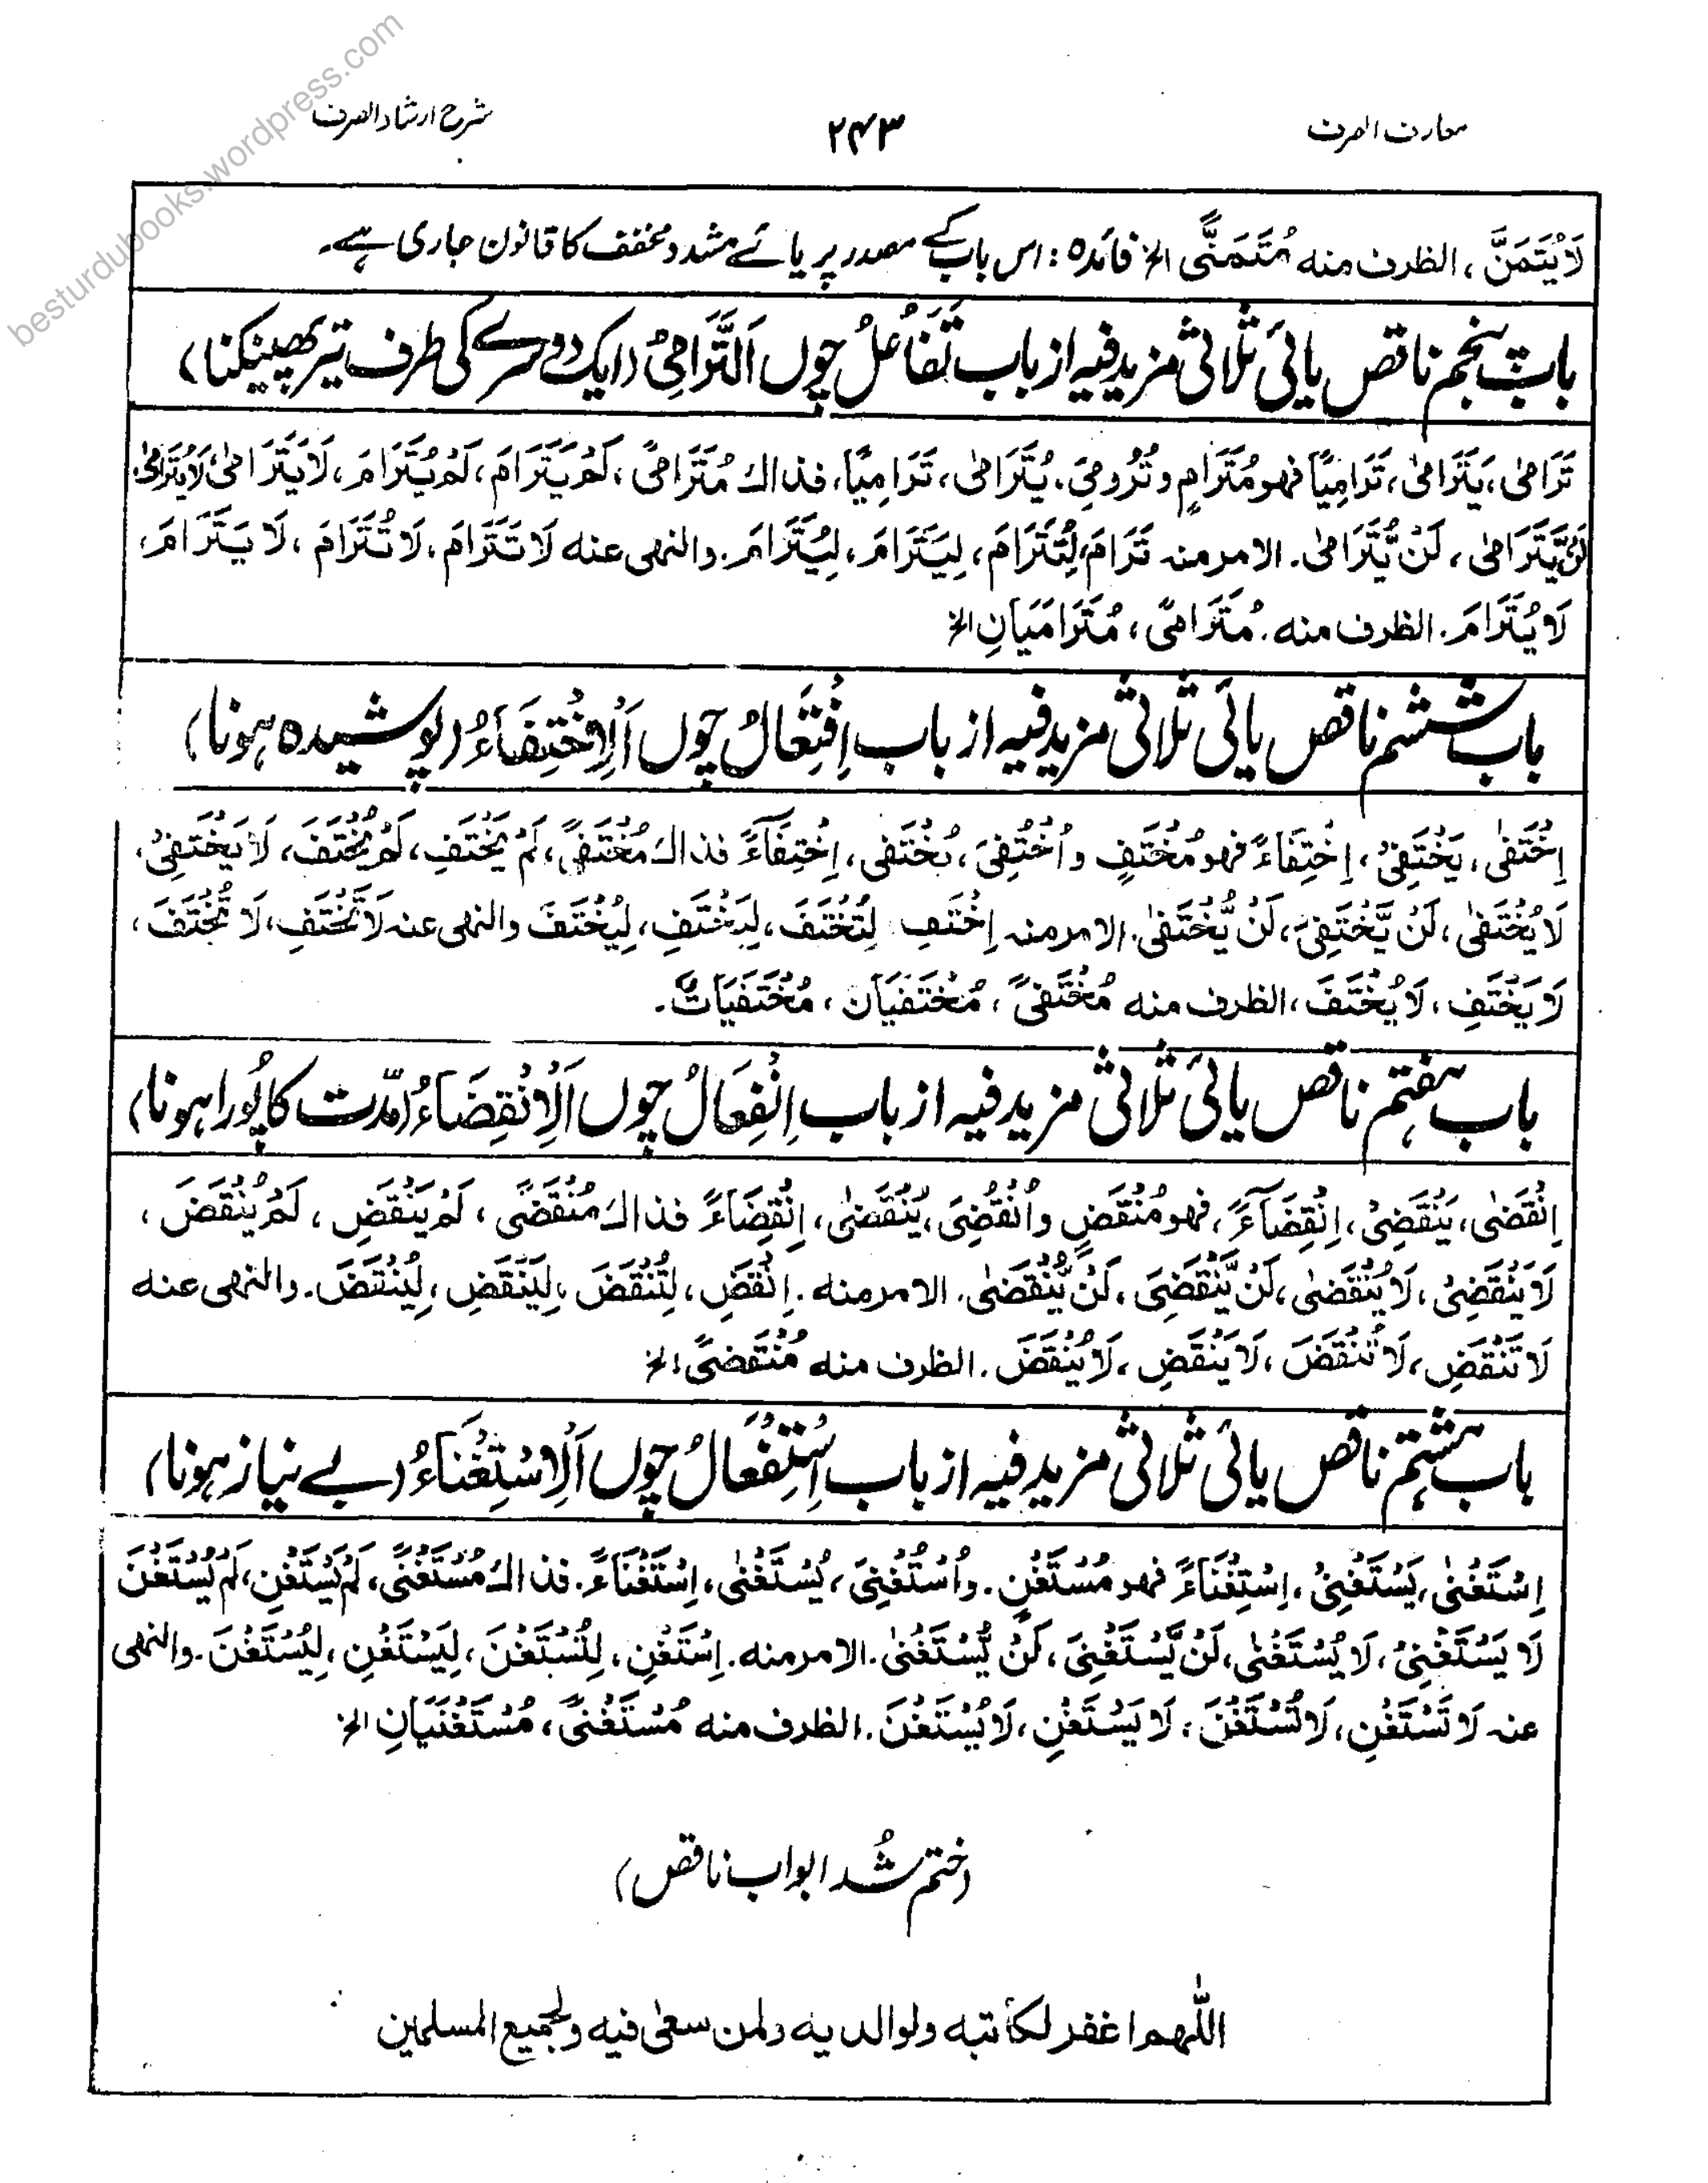 besturdubooks.wordpress.com
معارف الصرف
۲۴۳
شرح ارشاد الصرف
لَا یُتَمَنَّ ، الظرف منه مُتَمَنًّى الخ فائدہ : اس باب کے مصدر پر یائے مشدد مخفف کا قانون جاری ہے۔
باب پنجم ناقص یائی ثلاثی مزید فیہ از باب تَفَاعُلُ چوں اَلتَّرَامِیُ (ایک دوسرے کی طرف تیر پھینکنا)
تَرَامٰی، یَتَرَامٰی، تَرَامِیًا فھو مُتَرَامٍ و تُرُومِیَ. یُتَرَامٰی، تَرَامِیًا، فذاك مُتَرَامًی، لَمْ یَتَرَامَ، لَمْ یُتَرَامَ، لَا یَتَرَامٰی، لَا یُتَرَامٰی،
لَنْ یَّتَرَامٰی، لَنْ یُّتَرَامٰی. الامر منہ تَرَامَ، لِتُتَرَامَ، لِیَتَرَامَ، لِیُتَرَامَ. والنھی عنه لَا تَتَرَامَ، لَا تُتَرَامَ، لَا یَتَرَامَ،
لَا یُتَرَامَ. الظرف منه. مُتَرَامًی، مُتَرَامَیَانِ الخ
باب ششم ناقص یائی ثلاثی مزید فیہ از باب اِفْتِعَالُ چوں اَلْاِخْتِفَاءُ (پوشیدہ ہونا)
اِخْتَفٰی، یَخْتَفِیْ، اِخْتِفَاءً فھو مُخْتَفٍ و اُخْتُفِیَ، یُخْتَفٰی، اِخْتِفَآءً فذاك مُخْتَفًی، لَمْ یَخْتَفِ، لَمْ یُخْتَفَ، لَا یَخْتَفِیْ،
لَا یُخْتَفٰی، لَنْ یَّخْتَفِیَ، لَنْ یُّخْتَفٰی. الامر منہ اِخْتَفِ لِتُخْتَفَ، لِیَخْتَفِ، لِیُخْتَفَ والنھی عنہ لَا تَخْتَفِ، لَا تُخْتَفَ،
لَا یَخْتَفِ، لَا یُخْتَفَ، الظرف منه مُخْتَفًی، مُخْتَفَیَان، مُخْتَفَیَاتٌ۔
باب ہفتم ناقص یائی ثلاثی مزید فیہ از باب اِنْفِعَالُ چوں اَلْاِنْقِضَاءُ (مدّت کا پُورا ہونا)
اِنْقَضٰی، یَنْقَضِیْ، اِنْقِضَآءً، فھو مُنْقَضٍ و اُنْقُضِیَ، یُنْقَضٰی، اِنْقِضَاءً فذاك مُنْقَضًی، لَمْ یَنْقَضِ، لَمْ یُنْقَضَ،
لَا یَنْقَضِیْ، لَا یُنْقَضٰی، لَنْ یَّنْقَضِیَ، لَنْ یُّنْقَضٰی. الامر منه. اِنْقَضِ، لِتُنْقَضَ، لِیَنْقَضِ، لِیُنْقَضَ. والنھی عنه
لَا تَنْقَضِ، لَا تُنْقَضَ، لَا یَنْقَضِ، لَا یُنْقَضَ. الظرف منه مُنْقَضًی الخ
باب ہشتم ناقص یائی ثلاثی مزید فیہ از باب اِسْتِفْعَالُ چوں اَلْاِسْتِغْنَاءُ (بے نیاز ہونا)
اِسْتَغْنٰی، یَسْتَغْنِیْ، اِسْتِغْنَاءً فھو مُسْتَغْنٍ. و اُسْتُغْنِیَ، یُسْتَغْنٰی، اِسْتَغْنَاءً. فذاك مُسْتَغْنًی، لَمْ یَسْتَغْنِ، لَمْ یُسْتَغْنَ
لَا یَسْتَغْنِیْ، لَا یُسْتَغْنٰی، لَنْ یَّسْتَغْنِیَ، لَنْ یُّسْتَغْنٰی. الامر منه. اِسْتَغْنِ، لِتُسْتَغْنَ، لِیَسْتَغْنِ، لِیُسْتَغْنَ. والنھی
عنہ لَا تَسْتَغْنِ، لَا تُسْتَغْنَ، لَا یَسْتَغْنِ، لَا یُسْتَغْنَ. الظرف منه مُسْتَغْنًی، مُسْتَغْنَیَانِ الخ
(ختم شُد ابواب ناقص)
اللّٰهم اغفر لكاتبه ولوالدیه ولمن سعٰی فیه ولجمیع المسلمین